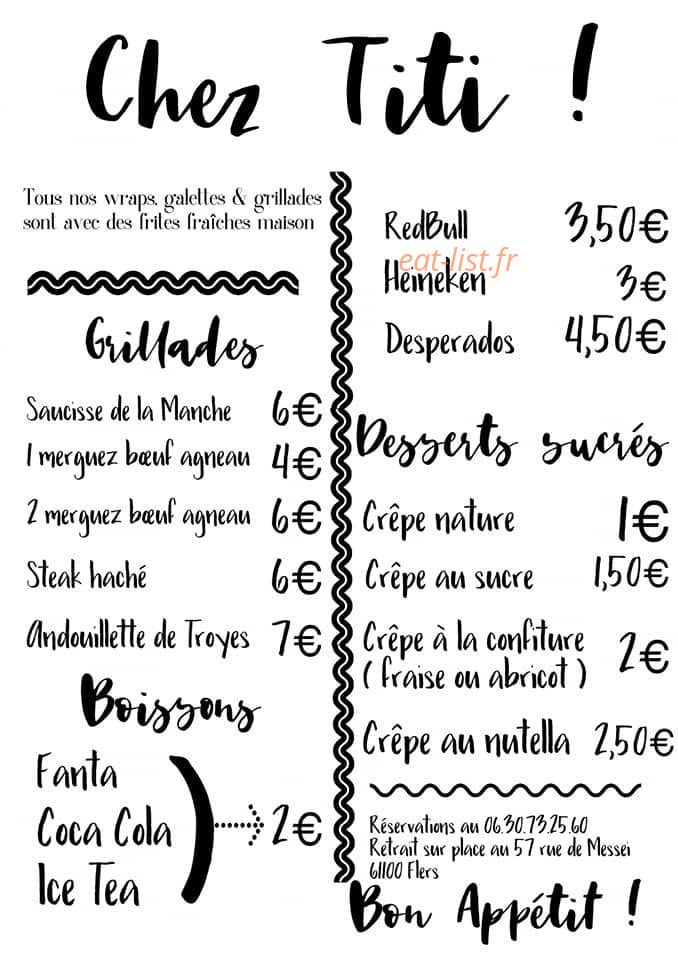 Chez Titi !
Tous nos wraps, galettes & grillades
sont avec des frites fraîches maison
Grillades
Saucisse de la Manche 6€
1 merguez bœuf agneau 4€
2 merguez bœuf agneau 6€
Steak haché 6€
Andouillette de Troyes 7€
Boissons
Fanta
Coca Cola 2€
Ice Tea
RedBull 3,50€
eat-list.fr
Heineken 3€
Desperados 4,50€
Desserts sucrés
Crêpe nature 1€
Crêpe au sucre 1,50€
Crêpe à la confiture 2€
( fraise ou abricot )
Crêpe au nutella 2,50€
Réservations au 06.30.73.25.60
Retrait sur place au 57 rue de Messei
61100 Flers
Bon Appétit !